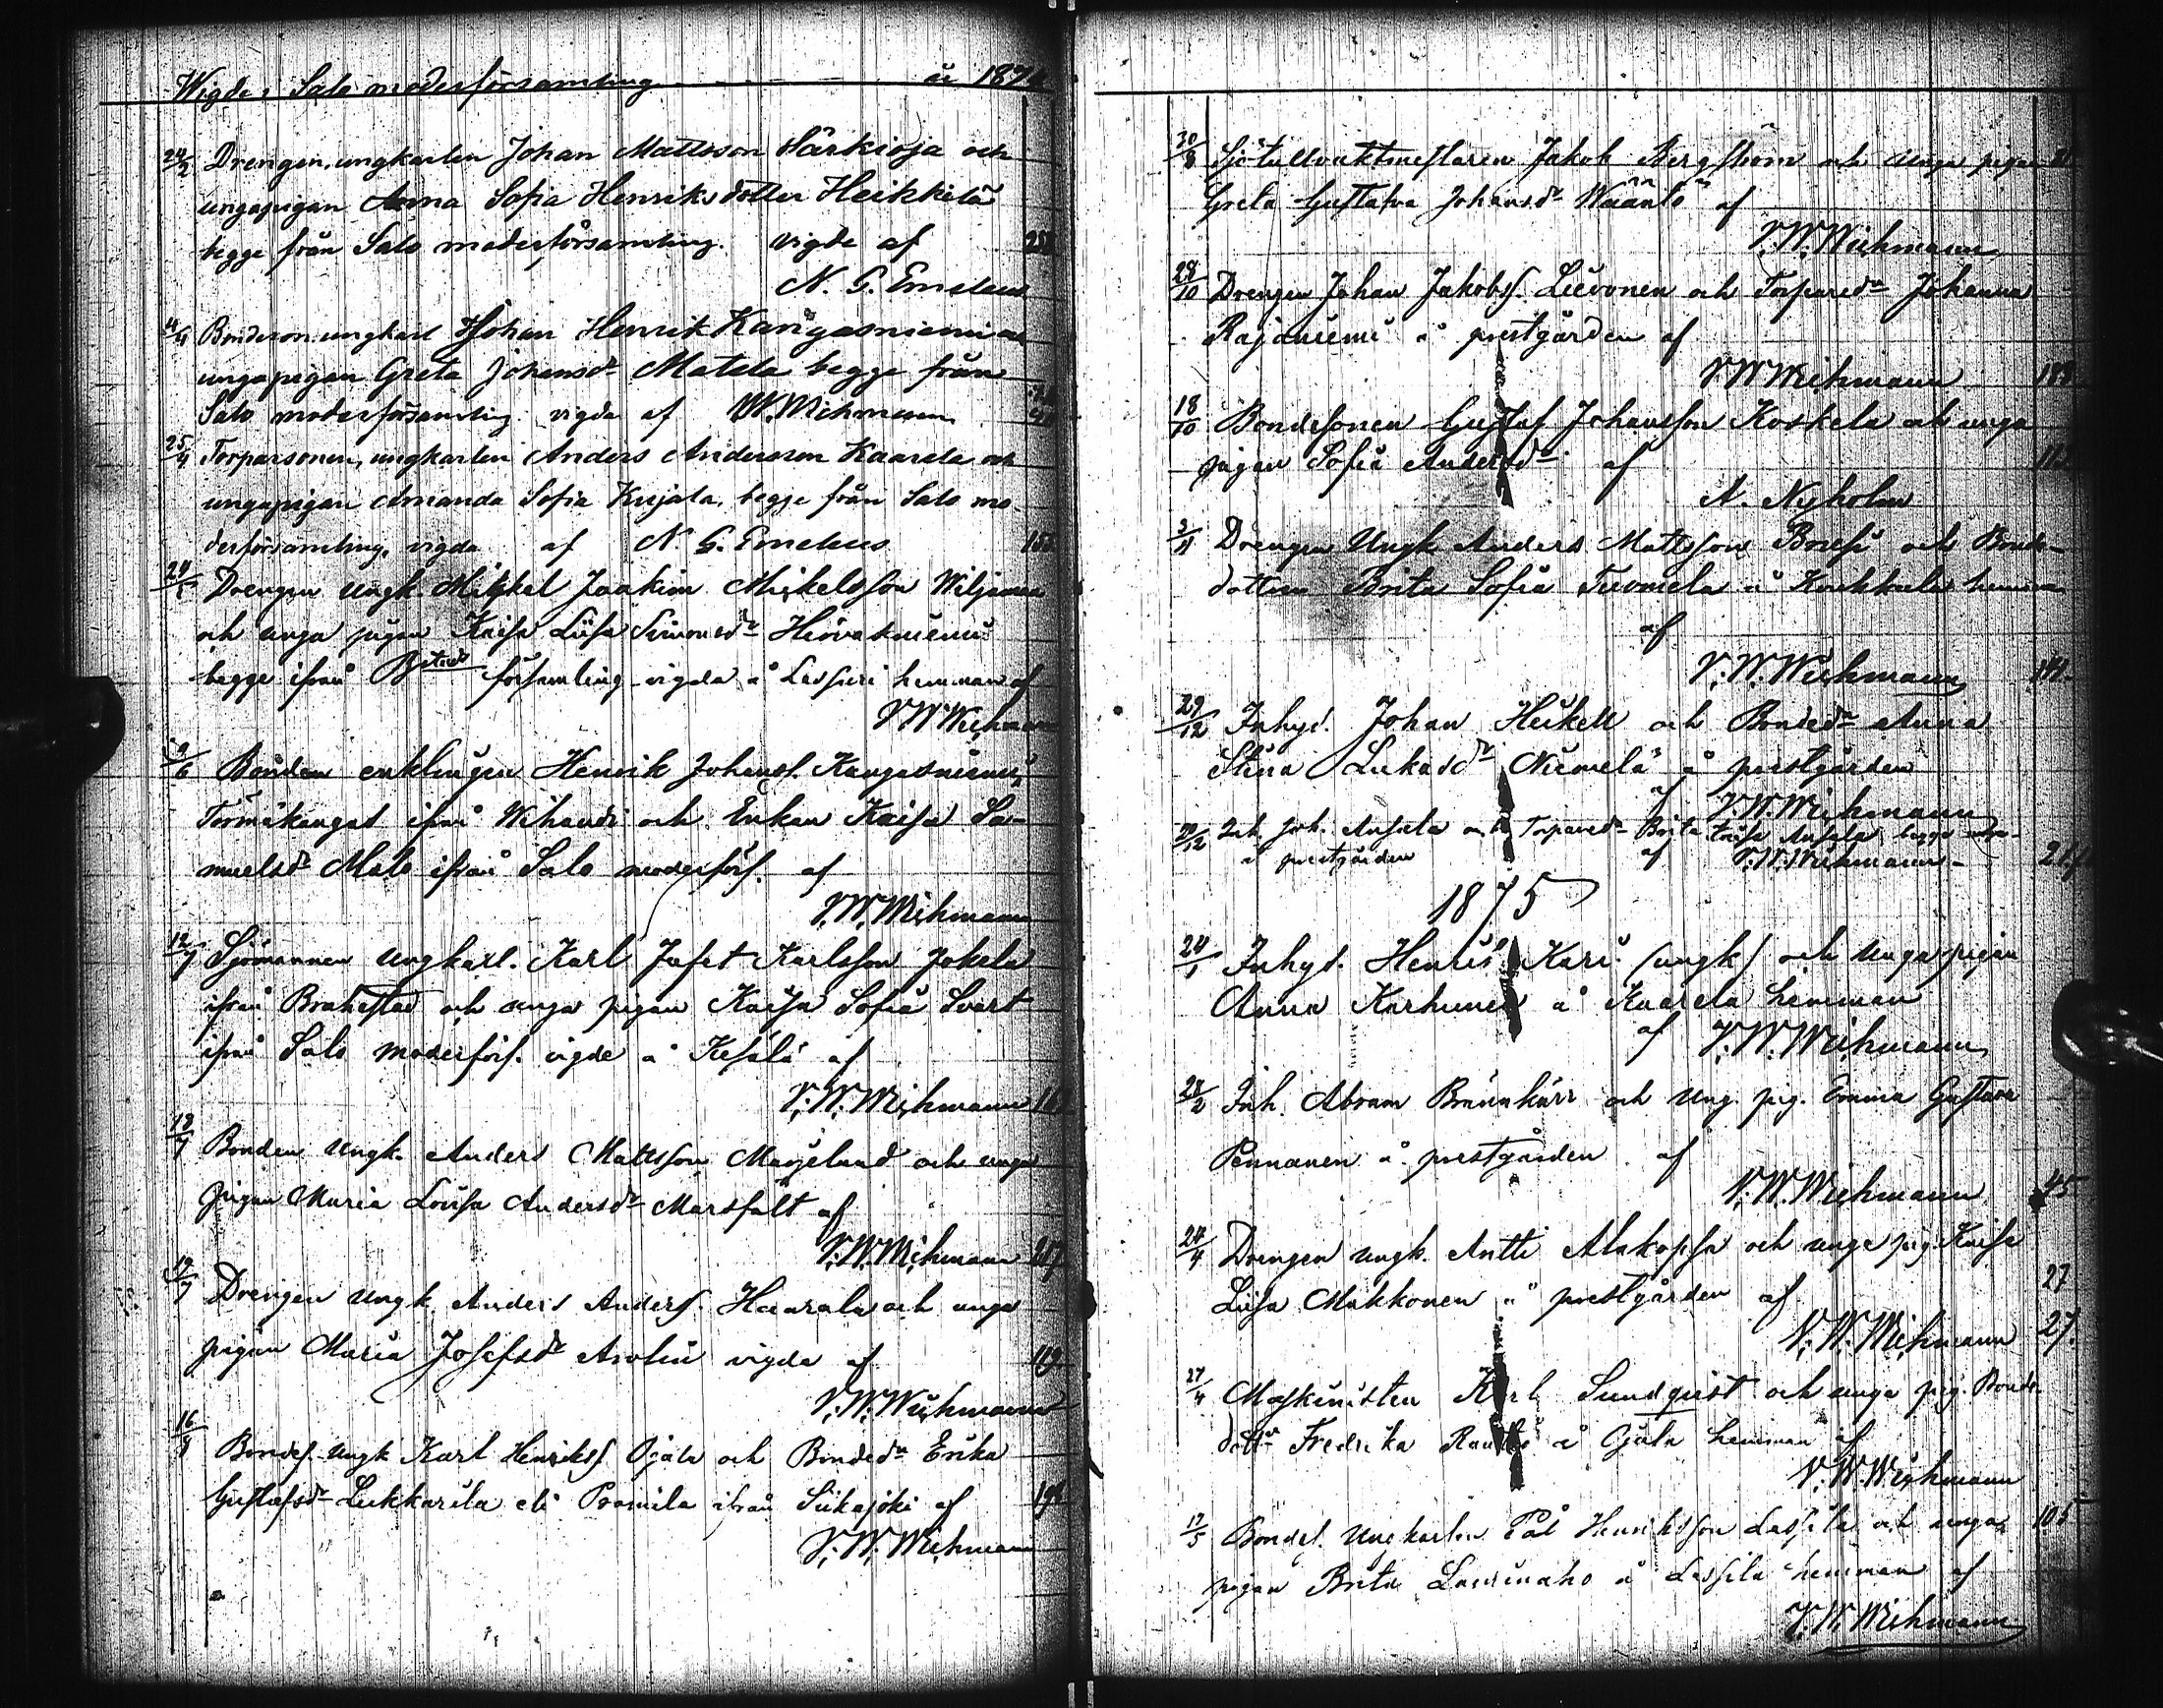 Wigde i Salo moderförsamling år 1874
24/2 Drengen, ungkarlen Johan Mattsson Särkioja och
ungapigan Anna Sofia Henriksdotter Heikkilä
begge från Salo moderförsamling. vigde af
N. G. Emeleus
Bondeson. ungkarl Johan Henrik Kangasniemi och
ungapigan Greta Johansdr Matela begge från
Salo moderförsamling vigda af V.W. Wichmann
25/4 Torparsonen, ungkarlen Anders Andersson Kaarela och
ungapigan Amanda Sofia Kujala, begge från Salo mo-
derförsamling, vigda af N. G. Emeleus
Drengen Ungk. Mikkel Joakim Mickelsson Wiljanen
och unga pigan Kaisa Liisa Simonsdr Hirvasniemi
begge ifrån Bstad församling vigda å Lassuri hemman af
V.W. Wichmann
9/6 Bonden enklingen Henrik Johanss. Kangasniemi,
Törmäkangas ifrån Wihandi och Enkan Kaisa Sa-
muelsdr Malo ifrån Salo moderförs. af
V.W. Wichmann
12/7 Sjömannen Ungkarl. Karl Jafet Karlsson Jokela
ifrån Brahestad och unga pigan Kaisa Sofia Svart
ifrån Salo moderförs. vigde å Kesälä af
V.W. Wichmann
Bonden Ungk. Anders Mattsson Marjelund och unga
pigan Maria Lovisa Andersdr Marsfält af
V.W. Wichmann
19/7 Drengen Ungk. Anders Anders. Haarala och unga
pigan Maria Josefsdr Arolin vigda af 119
V.W. Wichmann
16/8 Bondes. Ungk Karl Henrikss. Ojala och Bondedr Erika
Gustafsdr Lukkarila eli Pramila ifrån Siikajoki af
V.W. Wichmann
30/8 Sjötullvaktmestaren Jakob Bergström och Unga pigan
Greta Gustafva Johansdr Wääntö af
V.W. Wichmann
28/10 Drengen Johan Jakobss. Lievonen och Torparedr Johanna
Rajaniemi å prestgården af
V.W. Wichmann
18/10 Bondesonen Gustaf Johansson Koskela och unga
pigan Sofia Andersdr af
A. Nyholm
Drengen Ungk Anders Mattsson och Bonde-
dottren Brita Sofia Tuomela å Koukkula hemman
af
V.W. Wichmann
29/12 Inhys. Johan Heikell och Bondedr Anna
Stina Lukasdr Niemelä å prestgården
af V.W. Wichmann
Inh. Joh. Ansala och Torparedr Brita Kaisa Ansala, begge
å prestgården af V.W. Wichmann
1875
24/1 Inhys. Henrik Kari (ungk) och Unga pigan
Anna Karhunen å Kaarela hemman
af V.W. Wichmann
28/2 Inh. Abram Brännkärr och Ung. pig. Emma Gustava
Pennanen å prestgården af
V.W. Wichmann 45
24/4 Drengen Ungk. Antti Alakopsa och unga pig. Kaisa
Liisa Makkonen å prestgården af 27
V.W. Wichmann 27.
27/4 Maskinisten Karl Sundqvist och unga pig. Bonde-
dottr Fredrika å Ojala hemman af
V.W. Wichmann
17/5 Bondes. Ungkarlen Pål Henriksson Lassila och unga 105
pigan Brita Lauvinaho å Lassila hemman af
V.W. Wichmann